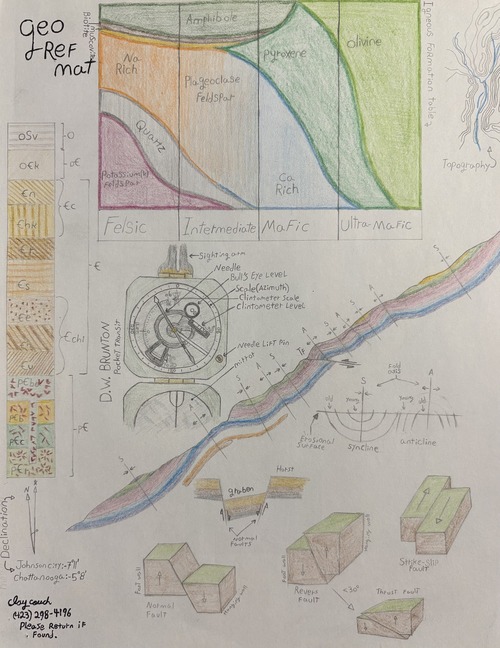 geo
Ref
mat
Biotite
muscovite
Amphibole
Na
Rich
Plageoclase
Feldspar
Pyroxene
Olivine
Quartz
Potassium(k)
Feldspar
Ca
Rich
Felsic
Intermediate
Mafic
Ultra-Mafic
Igneous formation table
Topography
OSv
O
O€k
O€
€n
€c
€hk
€r
€
€s
€chl
p€
Sighting arm
Needle
Bull's Eye Level
Scale(Azimuth)
Clinometer Scale
Clinometer Level
Needle Lift Pin
mirror
D.W. BRUNTON
Pocket Transit
S
A
S
A
S
Fold
axis
S
A
old
young
young
old
Erosional
Surface
syncline
anticline
Horst
graben
normal
faults
Declination
N
Johnson city:-7°11'
Chattanooga:-5°8'
foot wall
hanging wall
Normal
Fault
foot wall
hanging wall
Revers
Fault
<30°
Strike-Slip
Fault
Thrust Fault
Clay couch
(423) 298-4196
Please Return if
Found.